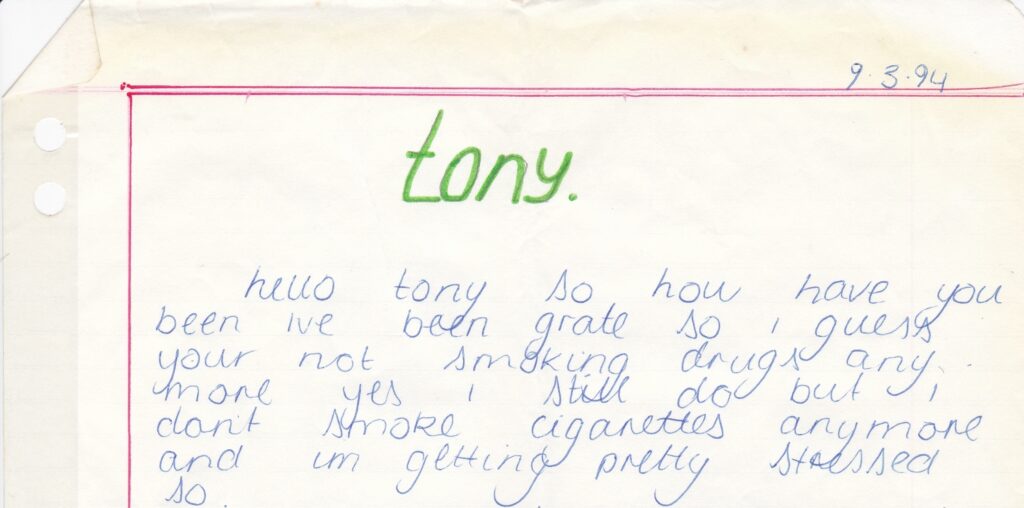 9.3.94
tony.
hello tony so how have you
been ive been grate so i guess
your not smoking drugs any..
more yes i still do but i
don't smoke cigarettes anymore
and im getting pretty stressed
so.